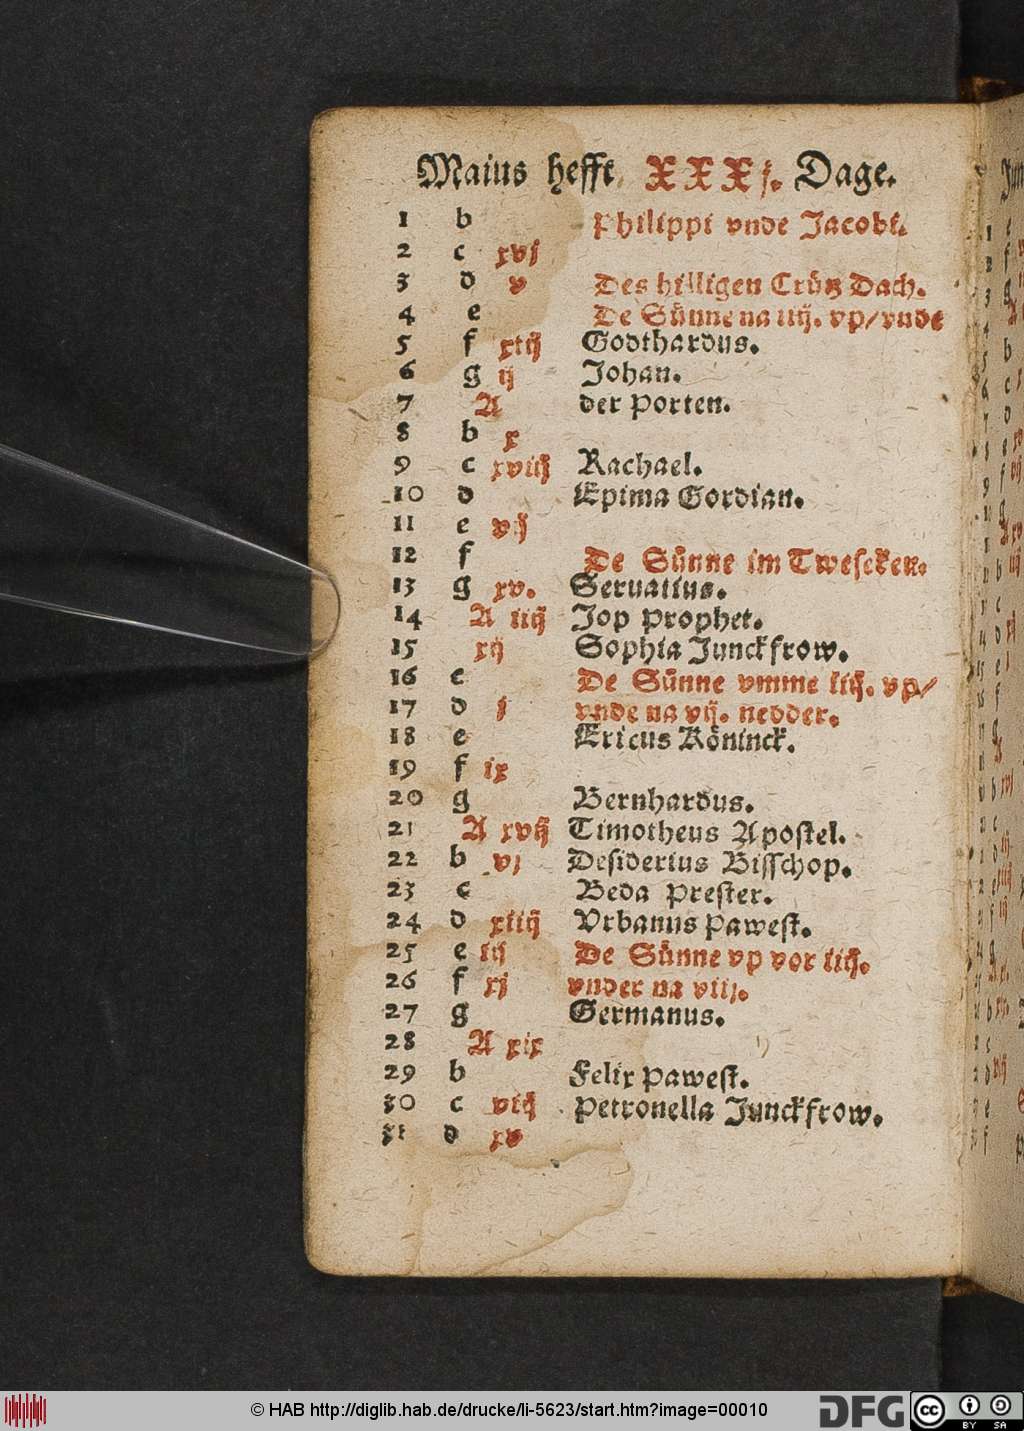 Maius hefft XXXj. Dage.
1 b Philippi vnde Jacobi.
2 c xvj
3 d v Des hilligen Crütz Dach.
4 e De Sünne na iiij. vp/vnde
5 f xiij Godthardus.
6 g ij Johan.
7 A der Porten.
8 b x
9 c xviij Rachael.
10 d Epima Gordian.
11 e vij
12 f De Sünne im Twescken.
13 g xv. Seruatius.
14 A iiij Jop Prophet.
15 xij Sophia Junckfrow.
16 c De Sünne vmme iiij. vp/
17 d j vnde na vij. nedder.
18 e Ericus Köninck.
19 f ix
20 g Bernhardus.
21 A xvij Timotheus Apostel.
22 b vj Desiderius Bisschop.
23 c Beda Prester.
24 d xiiij Vrbanus Pawest.
25 e iij De Sünne vp vor iiij.
26 f xj vnder na viij.
27 g Germanus.
28 A xix
29 b Felix Pawest.
30 c viij Petronella Junckfrow.
31 d xv
© HAB http://diglib.hab.de/drucke/li-5623/start.htm?image=00010
DFG
cc BY SA